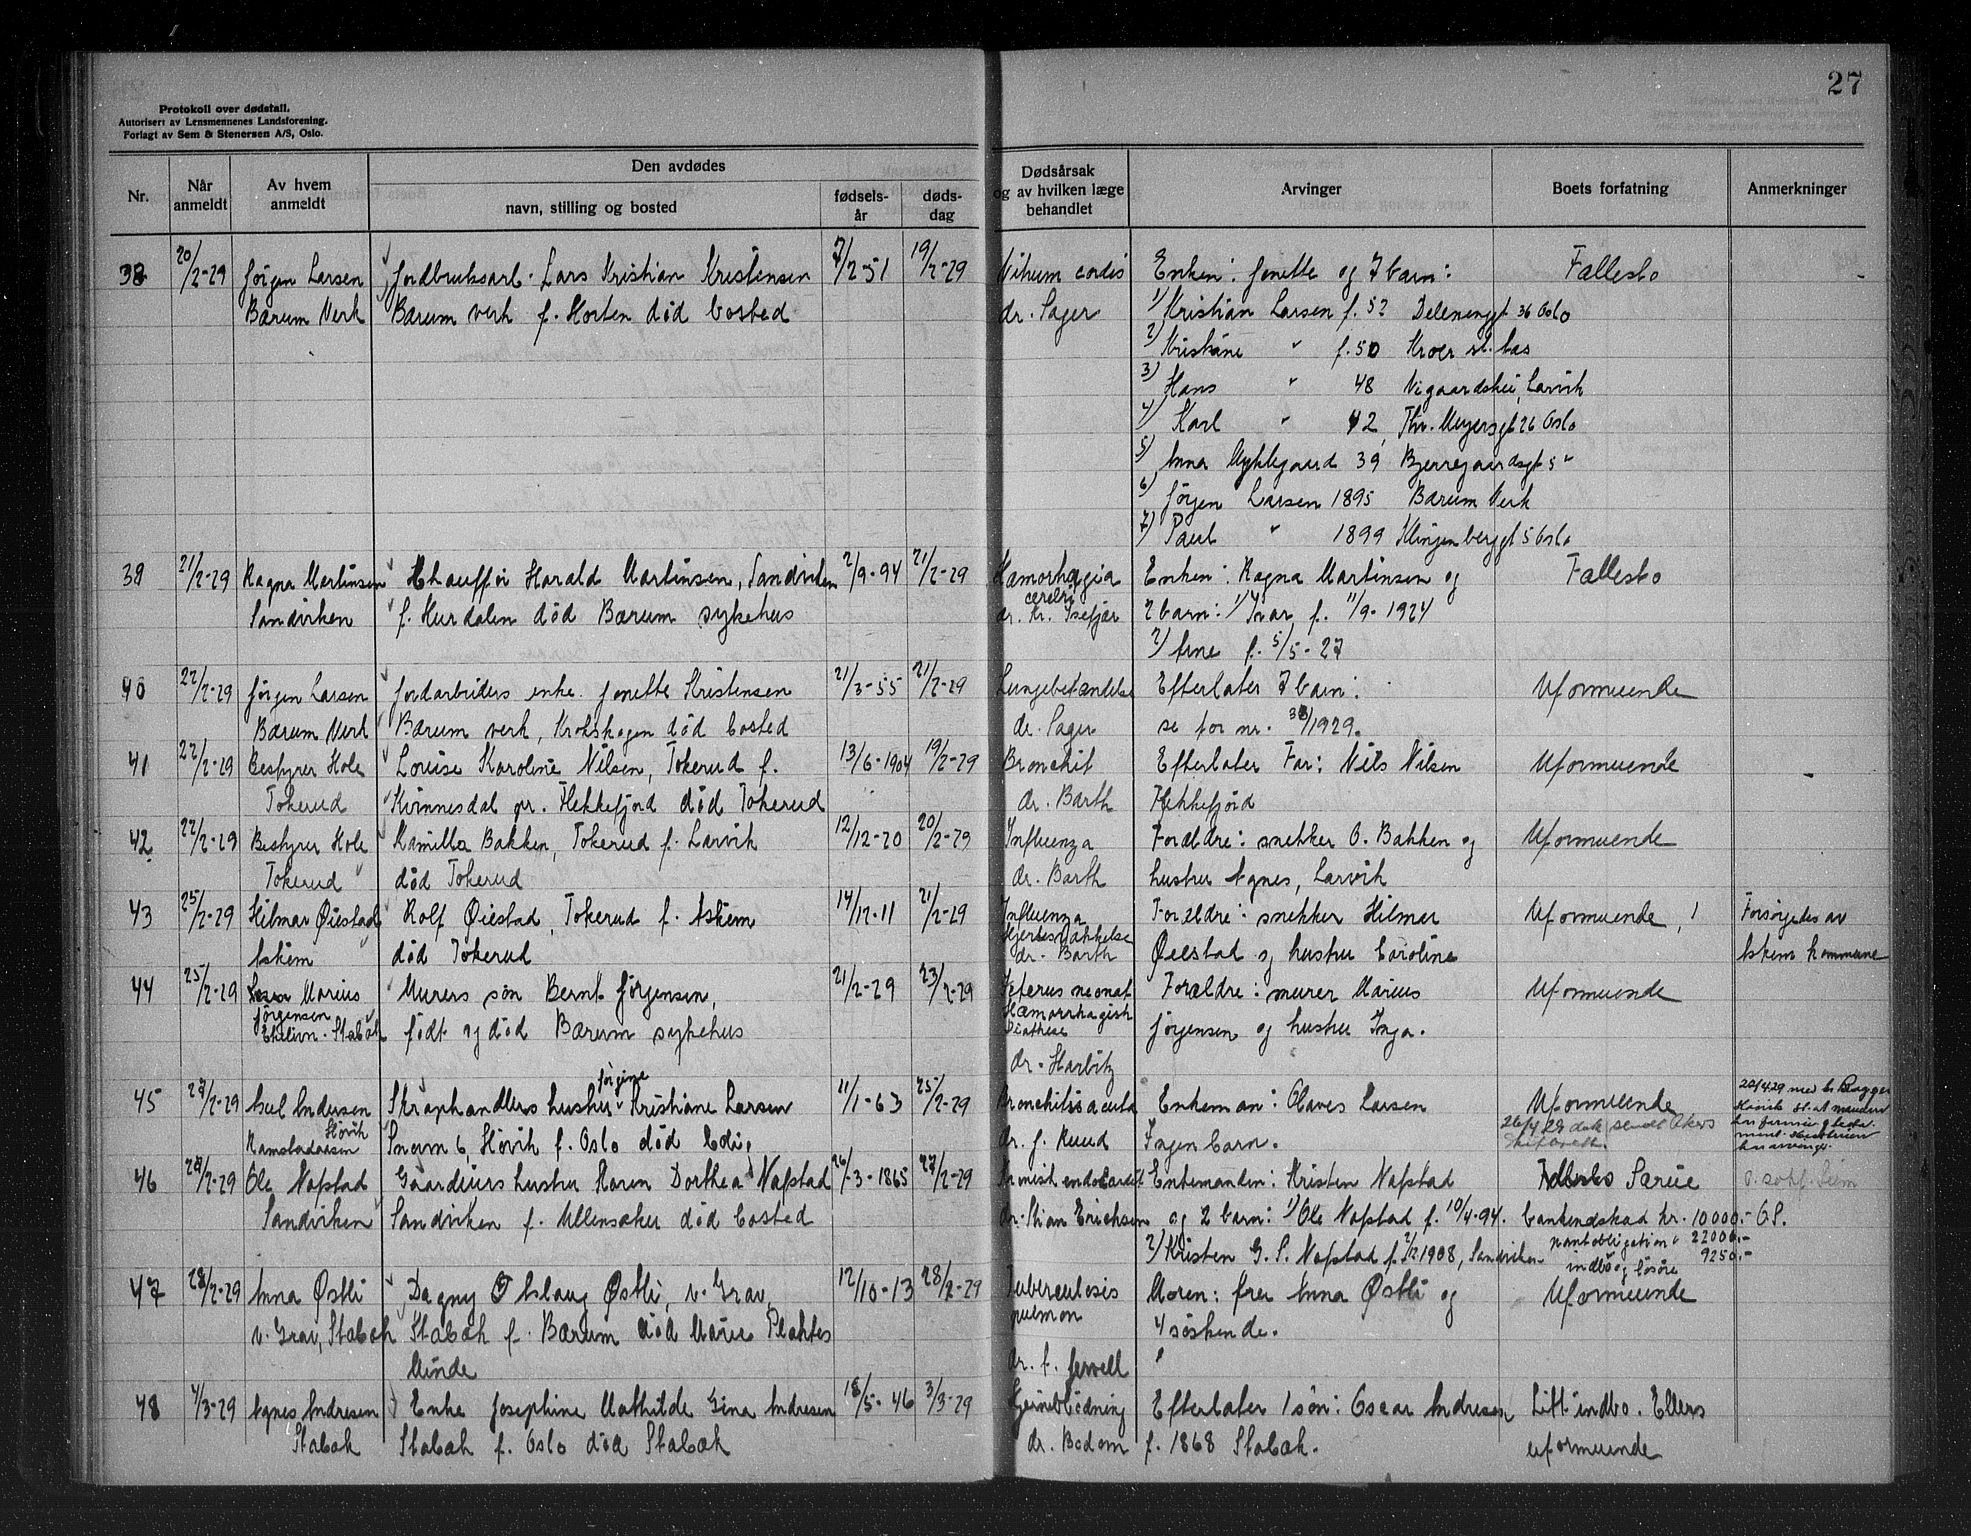 27
Protokoll over dødsfall.
Autorisert av Lensmennenes Landsforening.
Forlagt av Sem & Stenersen A/S, Oslo.
Nr. Når anmeldt Av hvem anmeldt Den avdødes navn, stilling og bosted fødsels-år døds-dag Dødsårsak og av hvilken læge behandlet Arvinger Boets forfatning Anmerkninger
38 20/2-29 Jørgen Larsen Jordbruksarb. Lars Kristian Kristensen 7/2-51 19/2-29 Vitium cordis Enken: Jonette og 7 barn: Fællesbo
Bærum Verk Bærum verk f. Horten død bosted dr. Sager 1) Kristian Larsen f. 52 36 Oslo
2) Kristine " f. 50 Kroer st. Aas
3) Hans " 48 Larvik
4) Karl " 42 Thv. Meyersgt 26 Oslo
5) Anna 39, Bjerregaardsgt 5 "
6) Jørgen Larsen 1895 Bærum Verk
7) Paul " 1899 Klingenberggt 5 Oslo
39 21/2-29 Ragna Martinsen Chauffør Harald Martinsen, Sandviken 2/9-94 21/2-29 Hæmorhagia cerebri Enken: Ragna Martinsen og Fællesbo
Sandviken f. Hurdalen død Bærum sykehus dr. Kr. Isefjær 2 barn: 1) Ivar f. 11/9-1924
2) Arne f. 5/5-27
40 22/2-29 Jørgen Larsen Jordarbeiders enke Jonette Kristensen 21/3-55 21/2-29 Lungebetændelse Efterlater 7 barn: Uformuende
Bærum Verk Bærum verk, Krokskogen død bosted dr. Sager se for nr. 38/1929.
41 22/2-29 Bestyrer Hole Louise Karoline Nilsen, Tokerud f. 13/6-1904 19/2-29 Bronchit Efterlater Far: Nils Nilsen Uformuende
Tokerud Kvinnesdal pr. Flekkefjord død Tokerud dr. Barth Flekkefjord
42 22/2-29 Bestyrer Hole Kamilla Bakken, Tokerud f. Larvik 12/12-20 20/2-29 Influenza Forældre: snekker O. Bakken og Uformuende
Tokerud død Tokerud dr. Barth hustru Agnes, Larvik
43 25/2-29 Hilmar Øiestad Rolf Øiestad, Tokerud f. Askim 14/12-11 21/2-29 Influenza Forældre: snekker Hilmar Uformuende Forsørgedes av
Askim død Tokerud Hjertesvækkelse dr. Barth Øiestad og hustru Caroline Askim kommune
44 25/2-29 Marius Jørgensen Murers søn Bernt Jørgensen, 21/2-29 23/2-29 Icterus neonat Forældre: murer Marius Uformuende
Ekelivn. Stabæk født og død Bærum sykehus Hæmorrhagisk Diathese Jørgensen og hustru Inga.
dr. Harbitz
45 27/2-29 Axel Andersen Skraphandlers hustru Jørgine Kristiane Larsen 11/1-63 25/2-29 Bronchitis acuta Enkeman: Olaves Larsen Uformuende
Høvik Snarøn 6, Høvik f. Oslo død bdi, dr. J. Ruud Ingen barn. 26/4 29 dok sendt Akers
46 27/2-29 Ole Nafstad Gaardeiers hustru Karen Dorthea Nafstad 26/3-1865 27/2-29 Kronisk endocardit Enkemanden: Kristen Nafstad
Sandviken Sandviken f. Ullensaker død bosted dr. Stian Erichsen og 2 barn: 1) Ole Nafstad f. 10/4-94. bankindskud kr. 10000.- GS.
2) Kristen G. S. Nafstad f. 2/2 1908, Sandviken pantobligation " 22000.-
indbo og løsøre 9250.-
47 28/2-29 Anna Østli Dagny Aslaug Østli, v. Grav, 12/10-13 28/2-29 Tuberculosis Moren: fru Anna Østli og Uformuende
v. Grav, Stabæk Stabæk f. Bærum død Marie Plahtes pulmon 4 søskende.
Minde dr. J. Jervell
48 4/3-29 Agnes Andresen Enke Josephine Mathilde Gina Andresen 18/5-46 3/3-29 Hjerneblødning Efterlater 1 søn: Oscar Andresen Litt indbo. Ellers
Stabæk Stabæk f. Oslo død Stabæk dr. Bødom f. 1868 Stabæk. uformuende